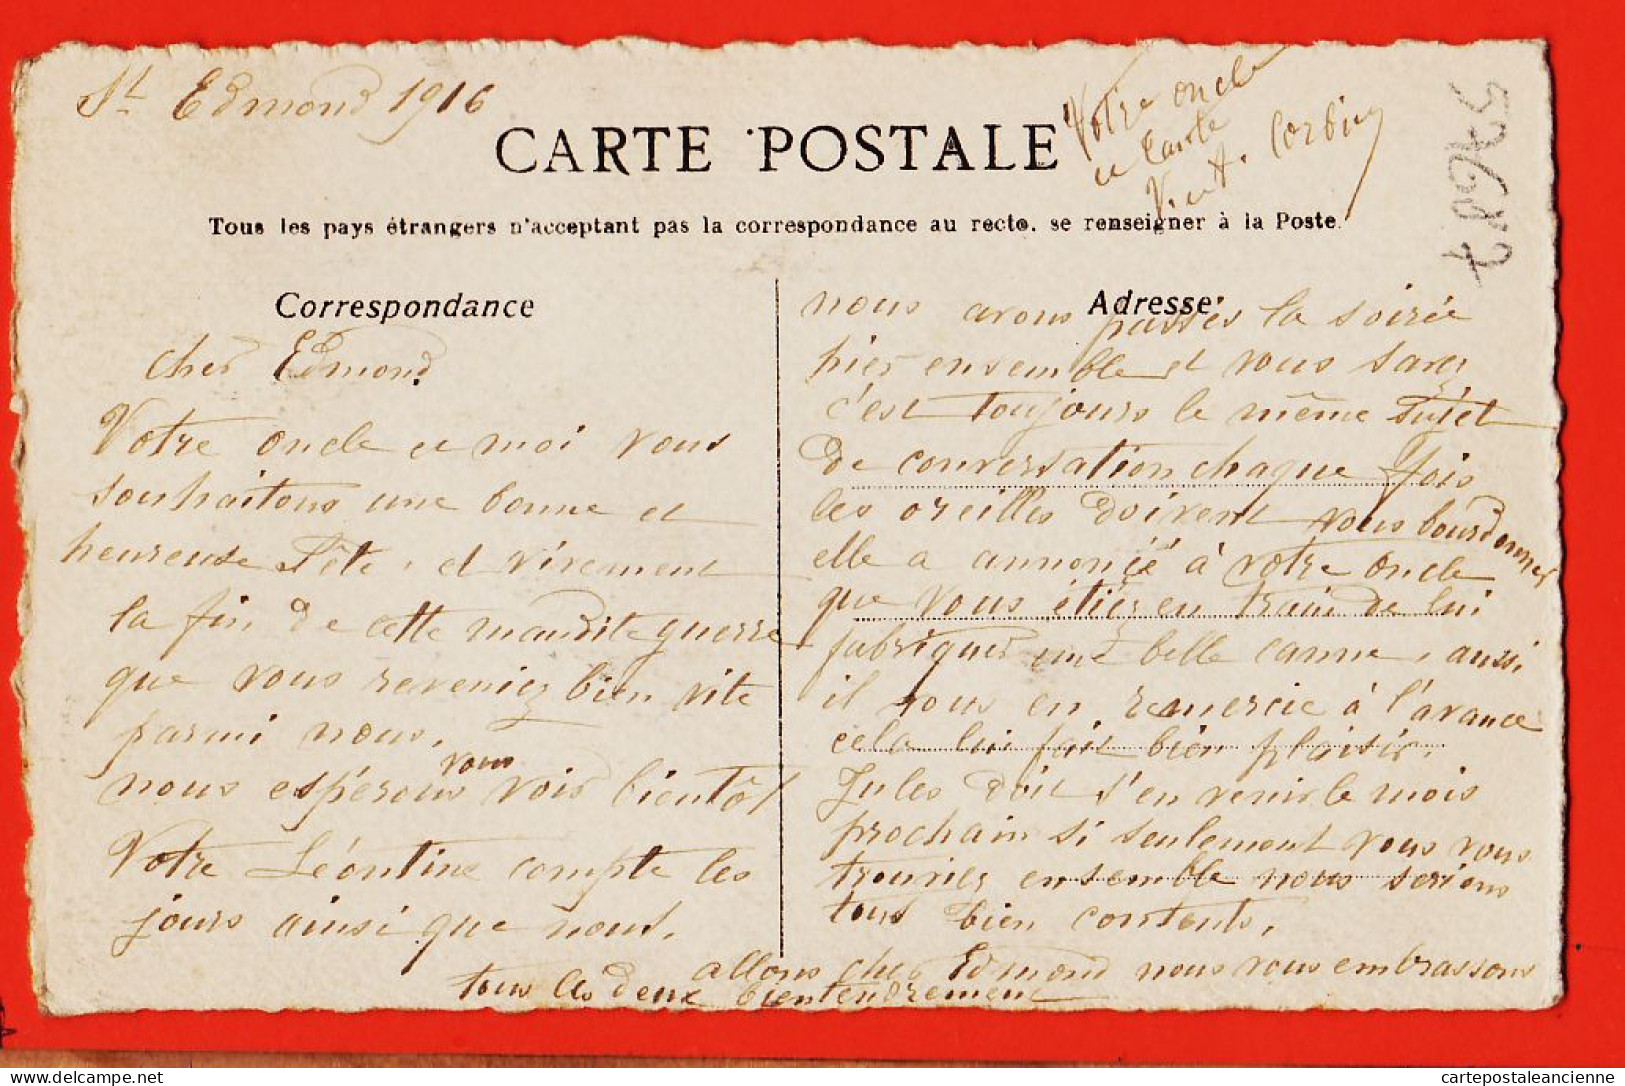 St Edmond 1916
Votre oncle
et tante
Vict. Corbin
57607
CARTE POSTALE
Tous les pays étrangers n'acceptant pas la correspondance au recto. se renseigner à la Poste.
Correspondance
cher Edmond
Votre oncle et moi vous
souhaitons une bonne et
heureuse Fête, et vivement
la fin de cette maudite guerre
que vous reveniez bien vite
parmi nous.
nous espérons vous voir bientôt
Votre Léontine compte les
jours ainsi que nous.
Adresse
nous avons passés la soirée
hier ensemble et vous savez
c'est toujours le même sujet
de conversation chaque fois
les oreilles doivent vous bourdonner
elle a annoncé à votre oncle
que vous étiez en train de lui
fabriquer une belle canne, aussi
il vous en remercie à l'avance
cela lui fait bien plaisir.
Jules doit s'en venir le mois
prochain si seulement vous vous
trouviez ensemble nous serions
tous bien contents.
allons cher Edmond nous vous embrassons
tous les deux bien tendrement
cartepostaleancienne.com